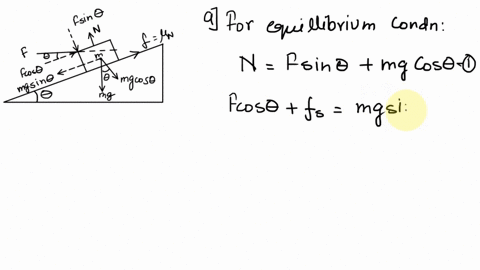 Fsinθ
N
f = μN
F
θ
m
Fcosθ
mgsinθ
θ
mgcosθ
θ
mg
a] For equillibrium condn:
N = Fsinθ + mg Cosθ-①
Fcosθ + fs = mgsi